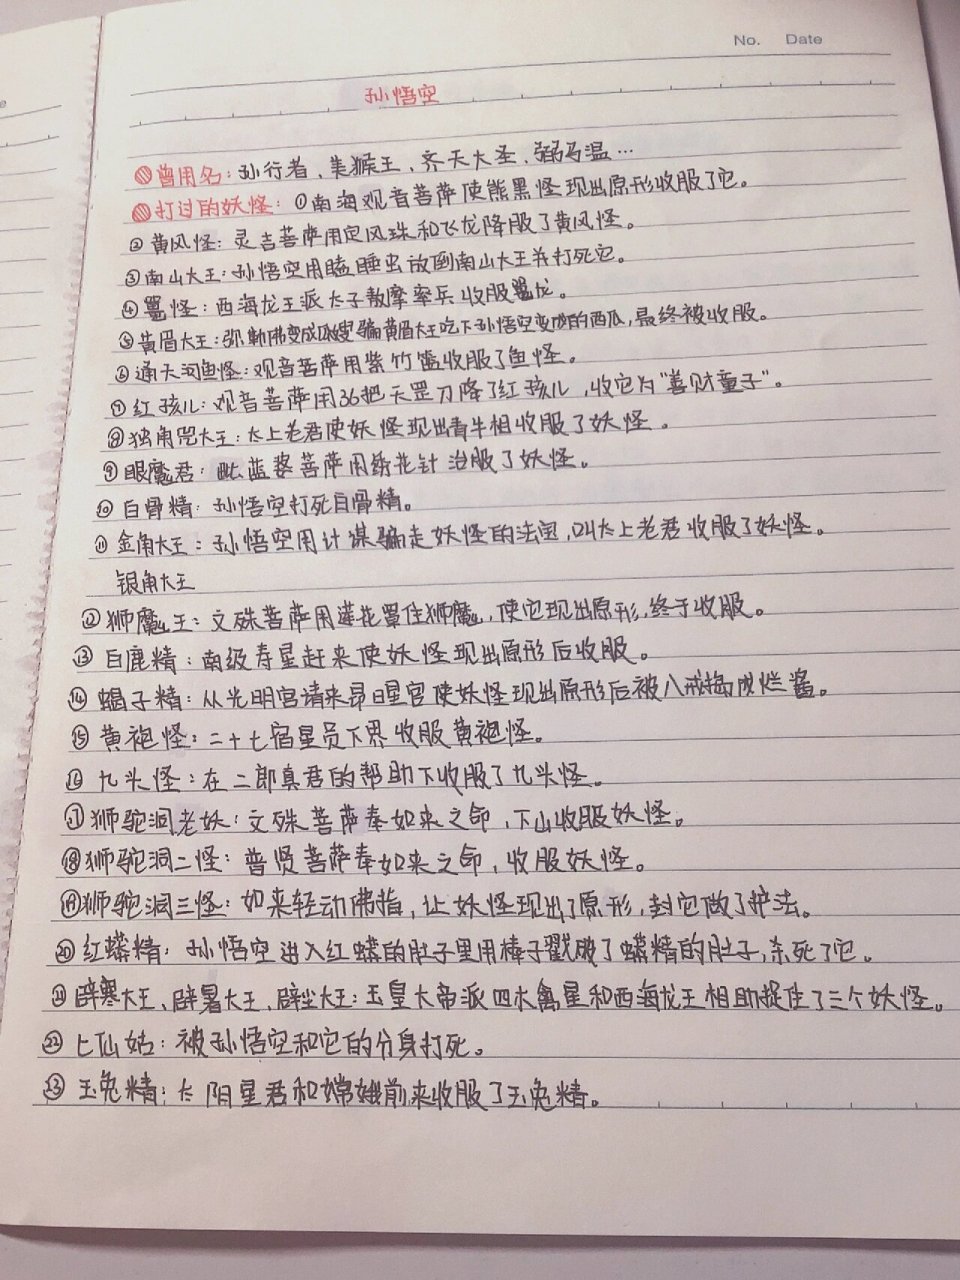 No. Date
孙悟空
曾用名：孙行者、美猴王、齐天大圣、弼马温…
打过的妖怪：①南海观音菩萨使熊黑怪现出原形收服了它。
②黄风怪：灵吉菩萨用定风珠和飞龙降服了黄风怪。
③南山大王：孙悟空用瞌睡虫放倒南山大王并打死它。
④鼍怪：西海龙王派太子敖摩率兵收服鼍龙。
⑤黄眉大王：弥勒佛变成瓜叟骗黄眉大王吃下孙悟空变成的西瓜，最终被收服。
⑥通天河鱼怪：观音菩萨用紫竹篮收服了鱼怪。
⑦红孩儿：观音菩萨用36把天罡刀降了红孩儿，收它为“善财童子”。
⑧独角兕大王：太上老君使妖怪现出青牛相收服了妖怪。
⑨眼魔君：毗蓝婆菩萨用绣花针治服了妖怪。
⑩白骨精：孙悟空打死白骨精。
⑪金角大王：孙悟空用计谋骗走妖怪的法宝，叫太上老君收服了妖怪。
银角大王
⑫狮魔王：文殊菩萨用莲花罩住狮魔，使它现出原形，终于收服。
⑬白鹿精：南级寿星赶来使妖怪现出原形后收服。
⑭蝎子精：从光明宫请来昴日星官使妖怪现出原形后被八戒捣成烂酱。
⑮黄袍怪：二十七宿星员下界收服黄袍怪。
⑯九头怪：在二郎真君的帮助下收服了九头怪。
⑰狮驼洞老妖：文殊菩萨奉如来之命，下山收服妖怪。
⑱狮驼洞二怪：普贤菩萨奉如来之命，收服妖怪。
⑲狮驼洞三怪：如来轻动佛指，让妖怪现出了原形，封它做了护法。
⑳红蟒精：孙悟空进入红蟒的肚子里用棒子戳破了蟒精的肚子，杀死了它。
㉑辟寒大王、辟暑大王、辟尘大王：玉皇大帝派四木禽星和西海龙王相助捉住了三个妖怪。
㉒七仙姑：被孙悟空和它的分身打死。
㉓玉兔精：太阴星君和嫦娥前来收服了玉兔精。